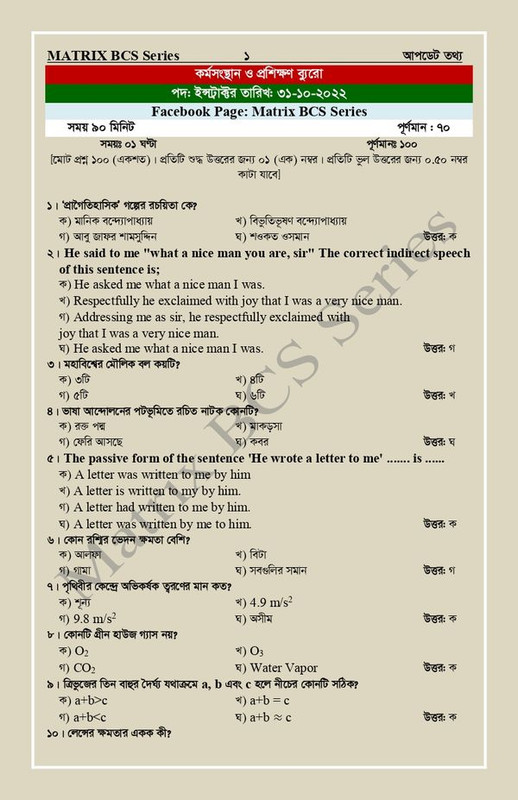 MATRIX BCS Series ১ আপডেট তথ্য
কর্মসংস্থান ও প্রশিক্ষণ ব্যুরো
পদ: ইন্সট্রাক্টর তারিখ: ৩১-১০-২০২২
Facebook Page: Matrix BCS Series
সময় ৯০ মিনিট পূর্ণমান : ৭০
সময়ঃ ০১ ঘণ্টা পূর্ণমানঃ ১০০
[মোট প্রশ্ন ১০০ (একশত)। প্রতিটি শুদ্ধ উত্তরের জন্য ০১ (এক) নম্বর। প্রতিটি ভুল উত্তরের জন্য ০.৫০ নম্বর
কাটা যাবে]
১। 'প্রাগৈতিহাসিক' গল্পের রচয়িতা কে?
ক) মানিক বন্দ্যোপাধ্যায় খ) বিভুতিভূষণ বন্দ্যোপাধ্যায়
গ) আবু জাফর শামসুদ্দিন ঘ) শওকত ওসমান উত্তর: ক
২। He said to me "what a nice man you are, sir" The correct indirect speech
of this sentence is;
ক) He asked me what a nice man I was.
খ) Respectfully he exclaimed with joy that I was a very nice man.
গ) Addressing me as sir, he respectfully exclaimed with
joy that I was a very nice man.
ঘ) He asked me what a nice man I was. উত্তর: গ
৩। মহাবিশ্বের মৌলিক বল কয়টি?
ক) ৩টি খ) ৪টি
গ) ৫টি ঘ) ৬টি উত্তর: খ
৪। ভাষা আন্দোলনের পটভূমিতে রচিত নাটক কোনটি?
ক) রক্ত পদ্ম খ) মাকড়সা
গ) ফেরি আসছে ঘ) কবর উত্তর: ঘ
৫। The passive form of the sentence 'He wrote a letter to me' ....... is ......
ক) A letter was written to me by him
খ) A letter is written to my by him.
গ) A letter had written to me by him.
ঘ) A letter was written by me to him. উত্তর: ক
৬। কোন রশ্মির ভেদন ক্ষমতা বেশি?
ক) আলফা খ) বিটা
গ) গামা ঘ) সবগুলির সমান উত্তর: গ
৭। পৃথিবীর কেন্দ্রে অভিকর্ষক ত্বরণের মান কত?
ক) শূন্য খ) 4.9 m/s²
গ) 9.8 m/s² ঘ) অসীম উত্তর: ক
৮। কোনটি গ্রীন হাউজ গ্যাস নয়?
ক) O₂ খ) O₃
গ) CO₂ ঘ) Water Vapor উত্তর: ক
৯। ত্রিভুজের তিন বাহুর দৈর্ঘ্য যথাক্রমে a, b এবং c হলে নীচের কোনটি সঠিক?
ক) a+b>c খ) a+b = c
গ) a+b<c ঘ) a+b ≈ c উত্তর: ক
১০। লেন্সের ক্ষমতার একক কী?
Matrix BCS Series